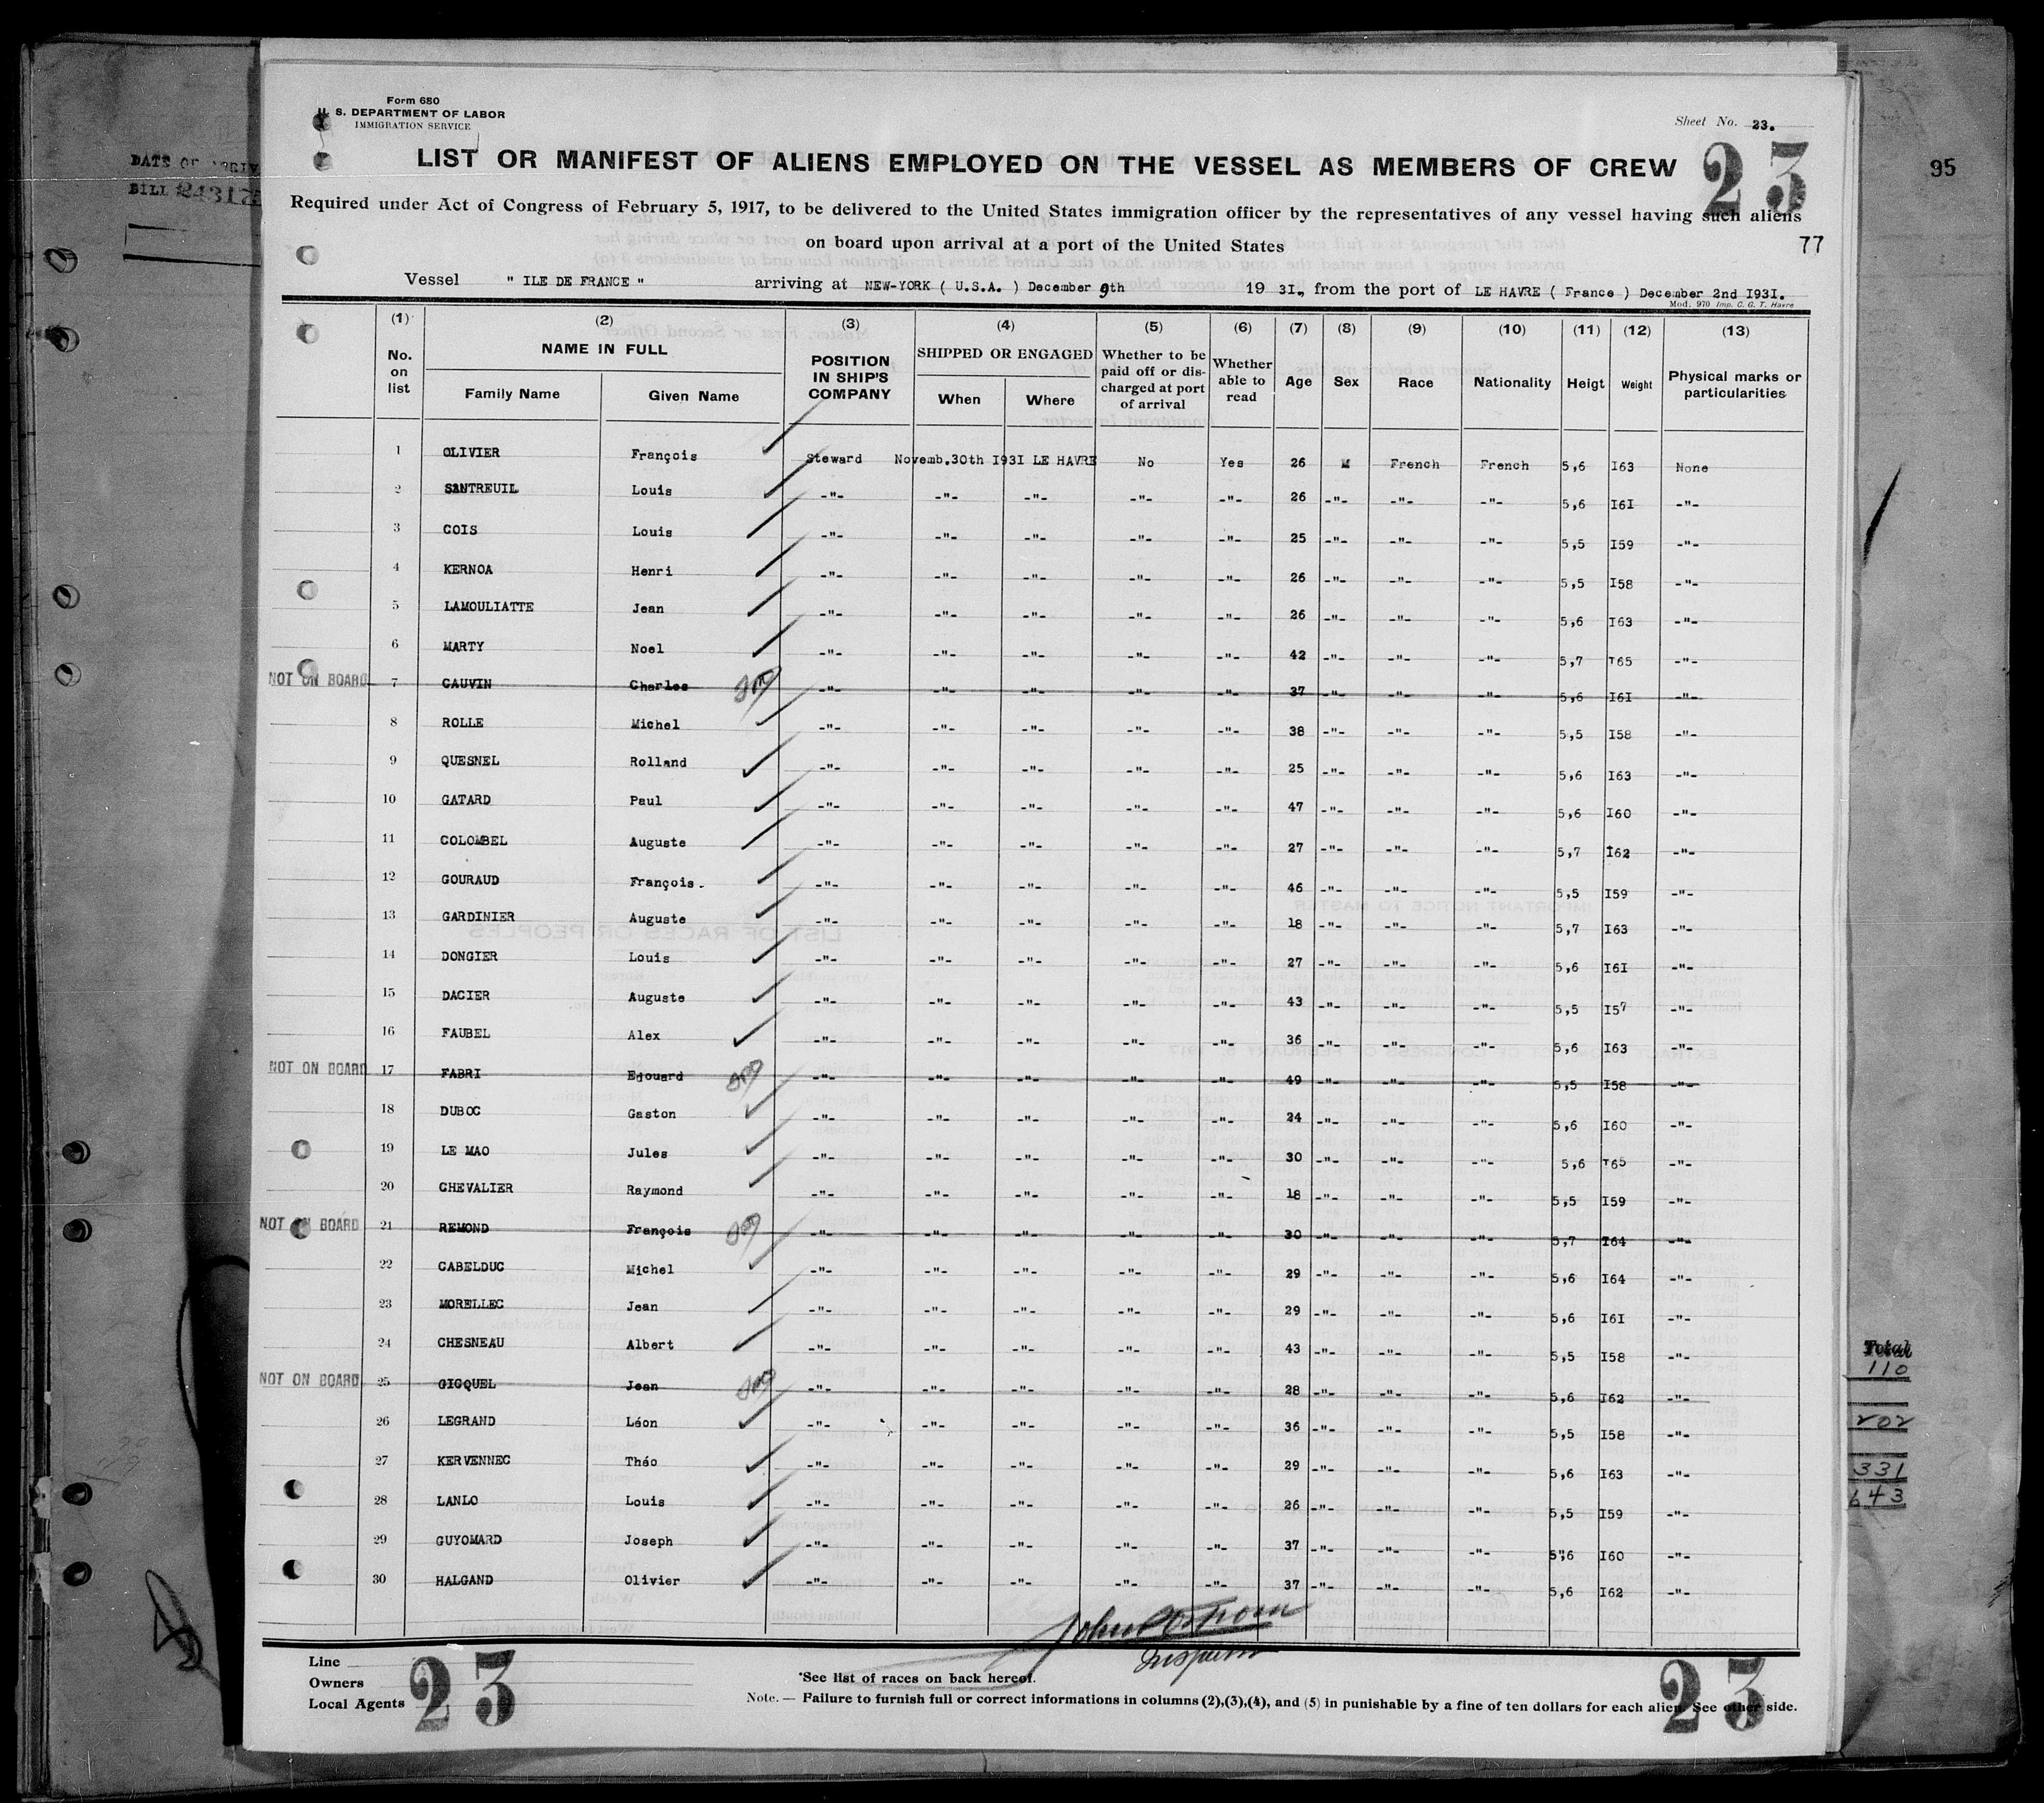 Form 680
U. S. DEPARTMENT OF LABOR
IMMIGRATION SERVICE
Sheet No. 23.
LIST OR MANIFEST OF ALIENS EMPLOYED ON THE VESSEL AS MEMBERS OF CREW
23
95
Required under Act of Congress of February 5, 1917, to be delivered to the United States immigration officer by the representatives of any vessel having such aliens
on board upon arrival at a port of the United States
77
Vessel " ILE DE FRANCE " arriving at NEW-YORK ( U.S.A. ) December 9th 19 3I., from the port of LE HAVRE ( France ) December 2nd I93I.
Mod. 970 Imp. C. G. T. Havre
(1) (2) (3) (4) (5) (6) (7) (8) (9) (10) (11) (12) (13)
No. on list NAME IN FULL Family Name Given Name POSITION IN SHIP'S COMPANY SHIPPED OR ENGAGED When Where Whether to be paid off or discharged at port of arrival Whether able to read Age Sex Race Nationality Heigt Weight Physical marks or particularities
1 OLIVIER François Steward Novemb.30th I93I LE HAVRE No Yes 26 M French French 5,6 I63 None
2 SANTREUIL Louis -"- -"- -"- -"- -"- 26 -"- -"- -"- 5,6 I6I -"-
3 COIS Louis -"- -"- -"- -"- -"- 25 -"- -"- -"- 5,5 I59 -"-
4 KERNOA Henri -"- -"- -"- -"- -"- 26 -"- -"- -"- 5,5 I58 -"-
5 LAMOULIATTE Jean -"- -"- -"- -"- -"- 26 -"- -"- -"- 5,6 I63 -"-
6 MARTY Noel -"- -"- -"- -"- -"- 42 -"- -"- -"- 5,7 I65 -"-
NOT ON BOARD 7 CAUVIN Charles -"- -"- -"- -"- -"- 37 -"- -"- -"- 5,6 I6I -"-
8 ROLLE Michel -"- -"- -"- -"- -"- 38 -"- -"- -"- 5,5 I58 -"-
9 QUESNEL Rolland -"- -"- -"- -"- -"- 25 -"- -"- -"- 5,6 I63 -"-
10 GATARD Paul -"- -"- -"- -"- -"- 47 -"- -"- -"- 5,6 I60 -"-
11 COLOMBEL Auguste -"- -"- -"- -"- -"- 27 -"- -"- -"- 5,7 I62 -"-
12 GOURAUD François. -"- -"- -"- -"- -"- 46 -"- -"- -"- 5,5 I59 -"-
13 GARDINIER Auguste -"- -"- -"- -"- -"- 18 -"- -"- -"- 5,7 I63 -"-
14 DONGIER Louis -"- -"- -"- -"- -"- 27 -"- -"- -"- 5,6 I6I -"-
15 DACIER Auguste -"- -"- -"- -"- -"- 43 -"- -"- -"- 5,5 I57 -"-
16 FAUBEL Alex -"- -"- -"- -"- -"- 36 -"- -"- -"- 5,6 I63 -"-
NOT ON BOARD 17 FABRI Edouard -"- -"- -"- -"- -"- 49 -"- -"- -"- 5,5 I58 -"-
18 DUBOC Gaston -"- -"- -"- -"- -"- 24 -"- -"- -"- 5,6 I60 -"-
19 LE MAO Jules -"- -"- -"- -"- -"- 30 -"- -"- -"- 5,6 I65 -"-
20 CHEVALIER Raymond -"- -"- -"- -"- -"- 18 -"- -"- -"- 5,5 I59 -"-
NOT ON BOARD 21 REMOND François -"- -"- -"- -"- -"- 30 -"- -"- -"- 5,7 I64 -"-
22 CABELDUC Michel -"- -"- -"- -"- -"- 29 -"- -"- -"- 5,6 I64 -"-
23 MORELLEC Jean -"- -"- -"- -"- -"- 29 -"- -"- -"- 5,6 I6I -"-
24 CHESNEAU Albert -"- -"- -"- -"- -"- 43 -"- -"- -"- 5,5 I58 -"-
NOT ON BOARD 25 GICQUEL Jean -"- -"- -"- -"- -"- 28 -"- -"- -"- 5,6 I62 -"-
26 LEGRAND Léon -"- -"- -"- -"- -"- 36 -"- -"- -"- 5,5 I58 -"-
27 KERVENNEC Théo -"- -"- -"- -"- -"- 29 -"- -"- -"- 5,6 I63 -"-
28 LANLO Louis -"- -"- -"- -"- -"- 26 -"- -"- -"- 5,5 I59 -"-
29 GUYOMARD Joseph -"- -"- -"- -"- -"- 37 -"- -"- -"- 5,6 I60 -"-
30 HALGAND Olivier -"- -"- -"- -"- -"- 37 -"- -"- -"- 5,6 I62 -"-
Total
110
202
331
643
Inspector
Line
Owners
Local Agents
23
*See list of races on back hereof.
Note. — Failure to furnish full or correct informations in columns (2),(3),(4), and (5) in punishable by a fine of ten dollars for each alien. See other side.
23